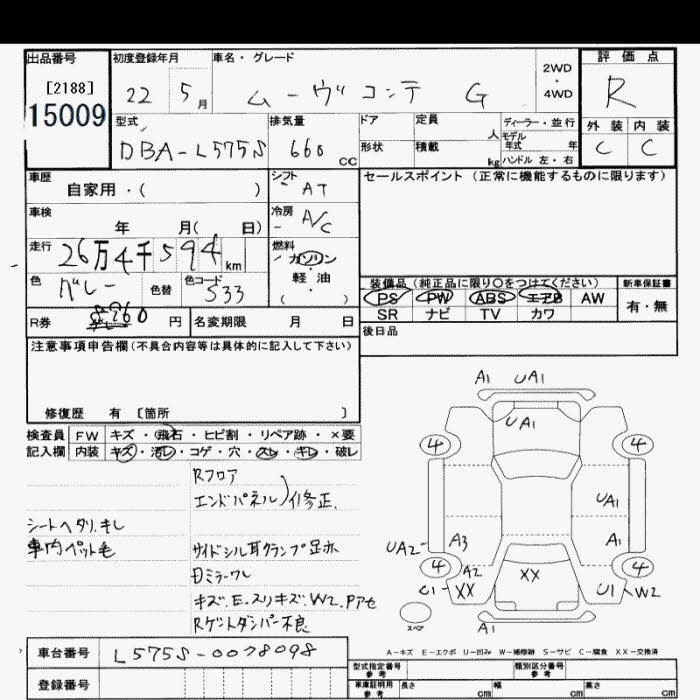 出品番号 初度登録年月 車名・グレード 2WD・4WD 評価点
[2188] 22 5月 ムーヴコンテ G R
15009
型式 排気量 ドア 定員 人 ディーラー・並行 外装 内装
DBA-L575S 660CC 形状 積載 kg モデル年式 年 C C
ハンドル 左・右
車歴 シフト セールスポイント (正常に機能するものに限ります)
自家用・( ) AT
車検 年 月( 日) 冷房 A/C
走行 26万4千594km 燃料 ガソリン・軽油・( )
色 グレー 色替 色コード S33
装備品 (純正品に限り〇をつけてください) 新車保証書
PS PW ABS エアB AW 有・無
SR ナビ TV カワ
R券 8960円 名変期限 月 日
後日品
注意事項申告欄 (不具合内容等は具体的に記入して下さい)
修復歴 有 [箇所 ]
検査員記入欄 FW キズ・飛石・ヒビ割・リペア跡・×要
内装 キズ・汚レ・コゲ・穴・スレ・キレ・破レ
Rフロア
エンドパネル)イ修正、
シートヘタリ.キレ
車内ペット毛
サイドシル耳クランプ足赤
ミラーワレ
キズ.E.スリキズ.W2.Pアセ
Rゲートダンパー不良
A1 UA1
UA1
4 4
UA1
A3 A1
UA2
4 A2 XX 4
U1 XX U1 W2
スペア
A1
A-キズ E-エクボ U-凹み W-補修跡 S-サビ C-腐食 XX-交換済
車台番号 L575S-0028098
登録番号
型式指定番号 参考 類別区分番号 参考
車庫証明用 参考 長さ cm 幅 cm 高さ cm